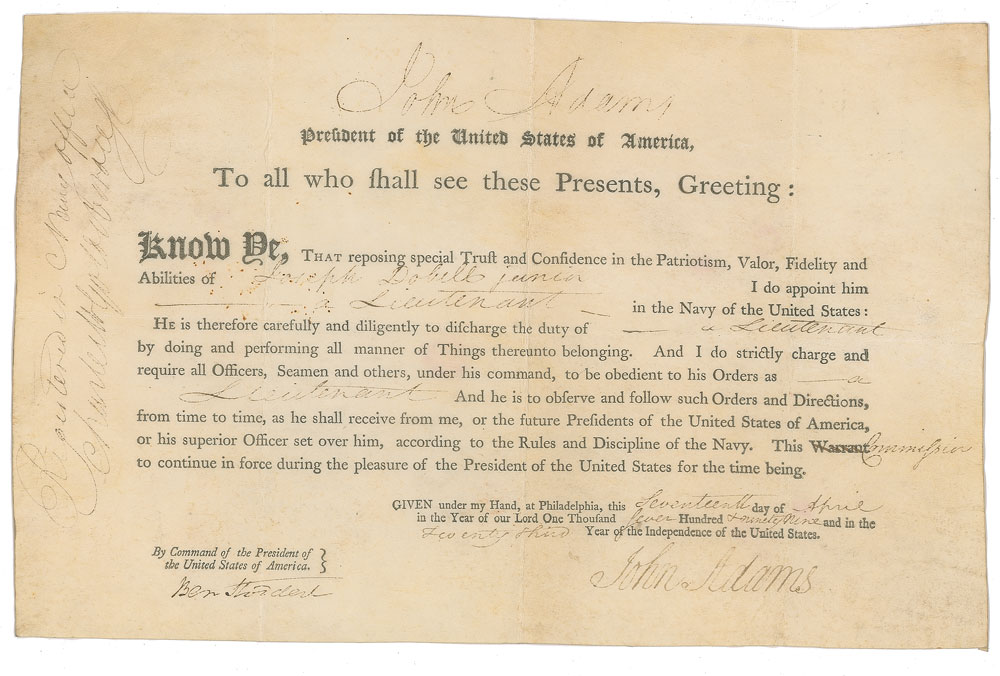 John Adams
Preſident of the United States of America,
To all who ſhall see these Presents, Greeting:
Know Ye, THAT reposing special Truſt and Confidence in the Patriotism, Valor, Fidelity and
Abilities of Joseph Dobell junior I do appoint him
a Lieutenant in the Navy of the United States:
HE is therefore carefully and diligently to diſcharge the duty of a Lieutenant
by doing and performing all manner of Things thereunto belonging. And I do strictly charge and
require all Officers, Seamen and others, under his command, to be obedient to his Orders as a
Lieutenant And he is to obſerve and follow such Orders and Directions,
from time to time, as he shall receive from me, or the future Preſidents of the United States of America,
or his superior Officer set over him, according to the Rules and Discipline of the Navy. This Warrant Commiſsion
to continue in force during the pleasure of the President of the United States for the time being.
GIVEN under my Hand, at Philadelphia, this Seventeenth day of April
in the Year of our Lord One Thousand Seven Hundred & ninety Nine and in the
Twenty third Year of the Independence of the United States.
By Command of the President of
the United States of America.
Ben Stoddert
John Adams
Registered
Charles W Goldsborough